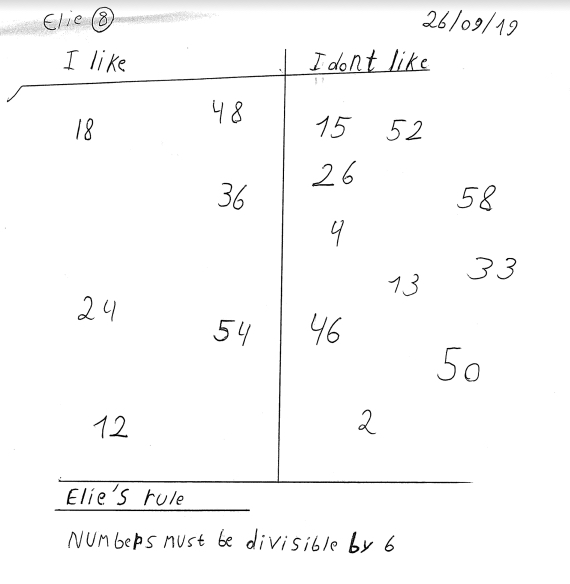 Elie 8 26/09/19
I like I dont like
18 48 15 52
36 26 58
4
24 54 13 33
46 50
12 2
Elie's rule
Numbers must be divisible by 6